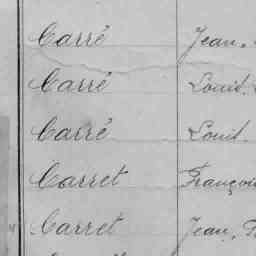 Carré Jean,
Carré Louis
Carré Louis
Carret François
Carret Jean,